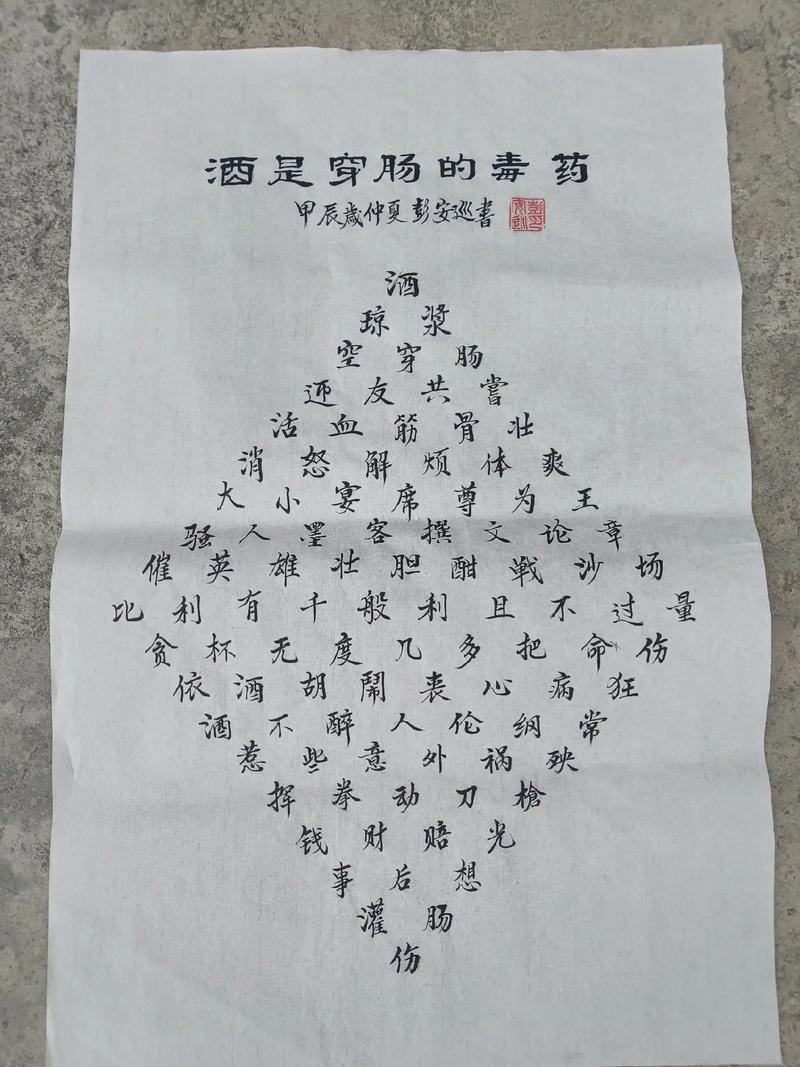 酒是穿肠的毒药
甲辰歲仲夏彭安巡書
酒
琼浆
空穿肠
迎友共嘗
活血筋骨壮
消怒解烦体爽
大小宴席尊为王
骚人墨客撰文论章
催英雄壮胆酣戦沙场
比利有千般利且不过量
贪杯无度几多把命伤
依酒胡鬧丧心病狂
酒不醉人伦纲常
惹些意外祸殃
挥拳动刀槍
钱财赔光
事后想
灌肠
伤